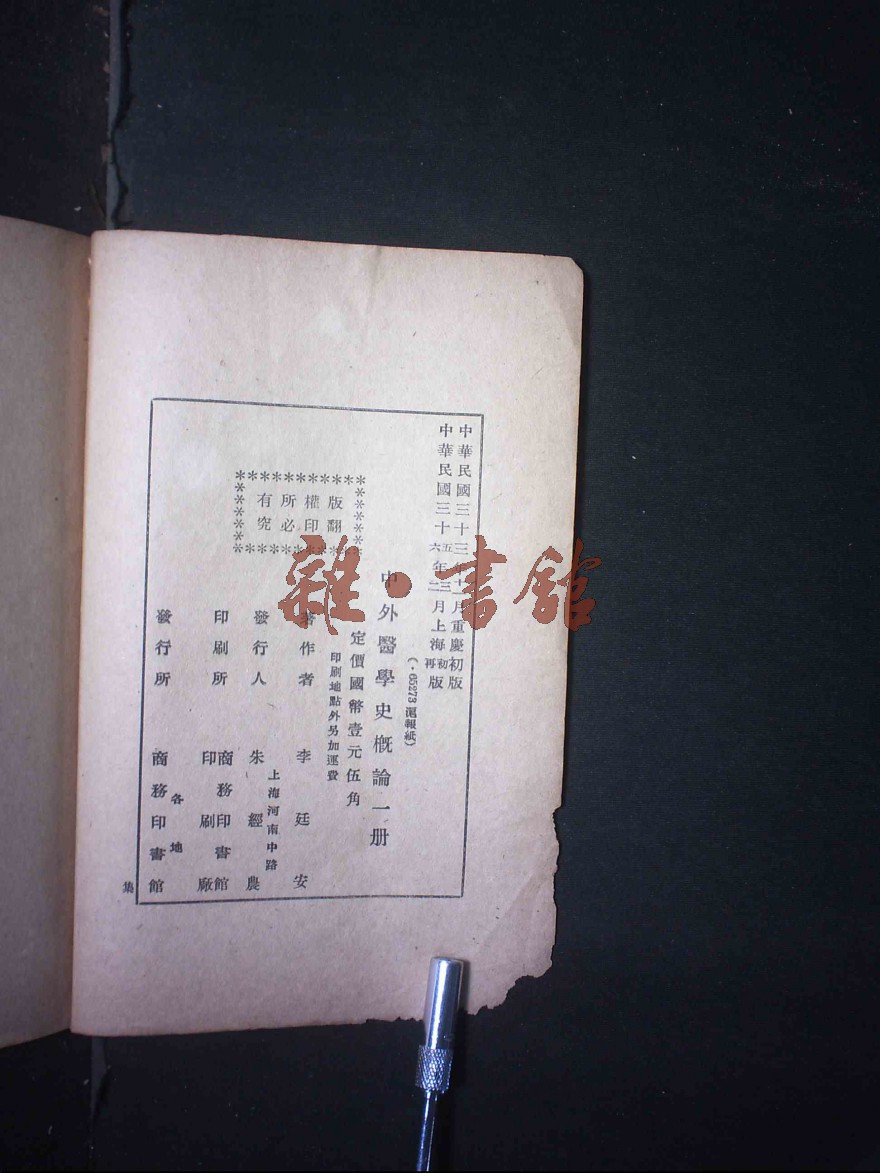 中華民國三十三年十一月重慶初版
中華民國三十五年三月上海初版
六年二月 再
(·65273滬報紙)
中外醫學史概論一册
定價國幣壹元伍角
印刷地點外另加運費
版權所有
翻印必究
著作者 李廷安
上海河南中路
發行人 朱經農
印刷所 商務印書館
印刷廠
發行所 各地
商務印書館
集
雜·書館